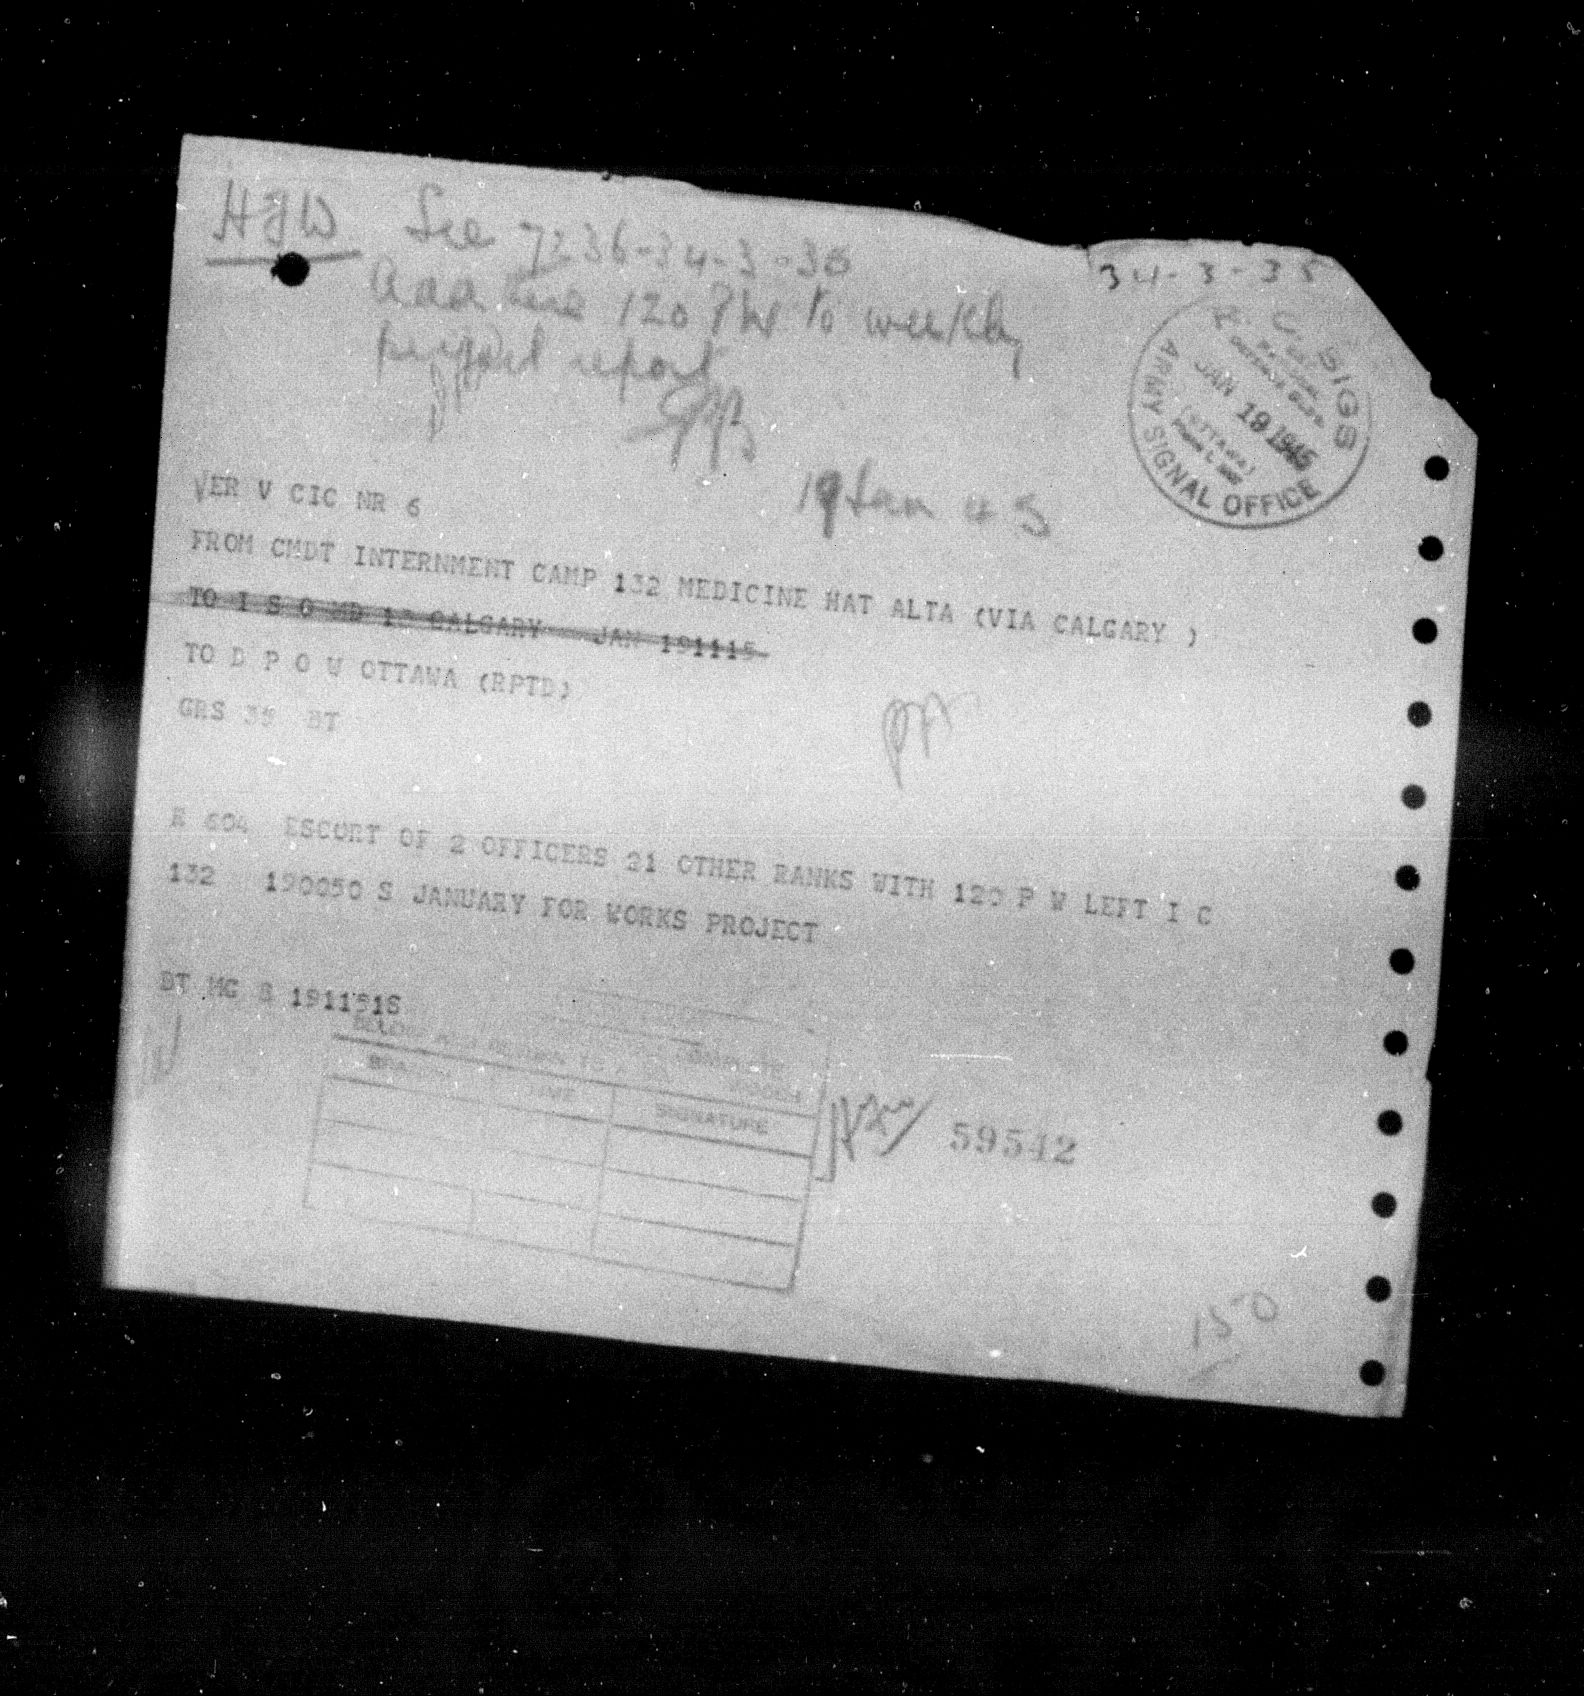 HJW See 7236-34-3-35
34-3-35
Add these 120 PW to weekly
project report
R.C. SIGS
NATIONAL
DEFENCE BLDG.
JAN 19 1945
(OTTAWA)
ARMY SIGNAL OFFICE
19 Jan 45
VER V CIC NR 6
FROM CMDT INTERNMENT CAMP 132 MEDICINE HAT ALTA (VIA CALGARY )
TO I S O MD 13 CALGARY JAN 191115
TO D P O W OTTAWA (RPTD)
GRS 35 BT
R 604 ESCORT OF 2 OFFICERS 21 OTHER RANKS WITH 120 P W LEFT I C
132 190050 S JANUARY FOR WORKS PROJECT
BT MG S 191151S
COMPLETE
BELOW AND RETURN TO
BRANCH NAME SIGNATURE
59542
150